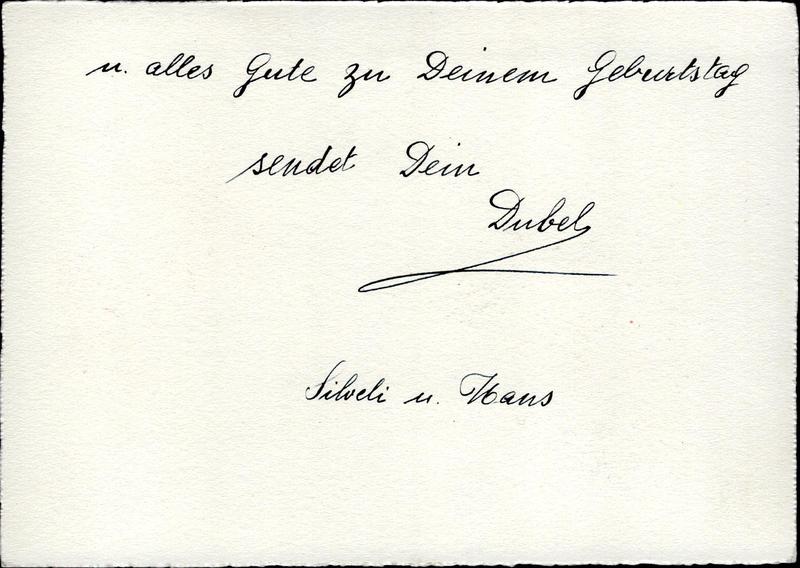 u. alles Gute zu Deinem Geburtstag
sendet Dein
Dubel
Silveli u. Hans